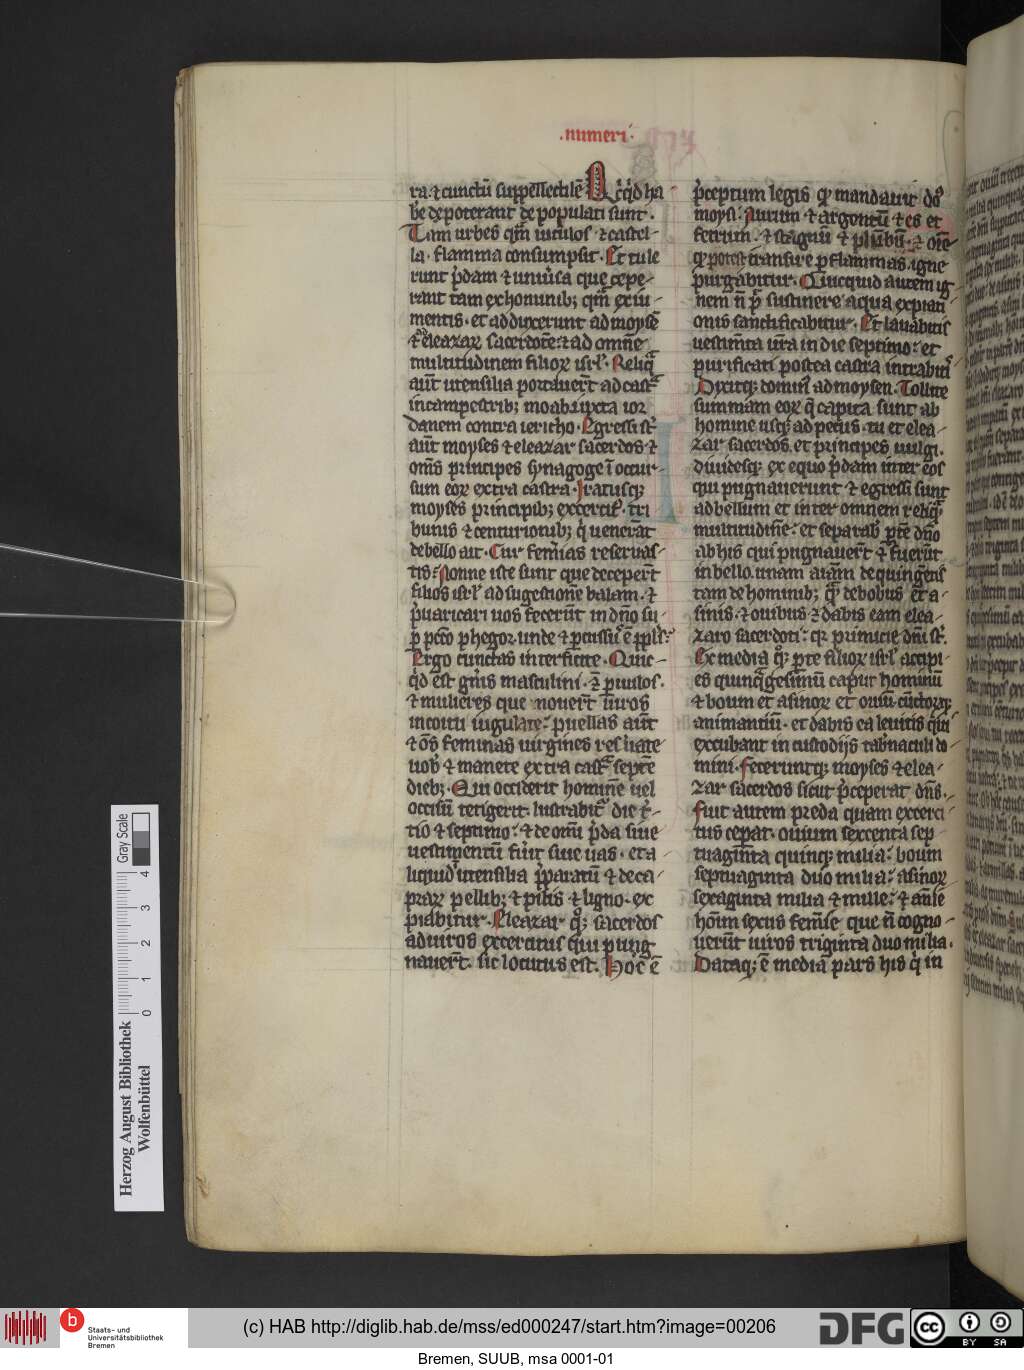 .numeri.
ra. ⁊ cunctū suppellectilē Q̇cq̇d ha
b̄e depoterant depopulati sunt.
Tam urbes q̄m uiculos ⁊ castel-
la. flamma consumpsit. Et tule
runt p̄dam ⁊ uniūsa que cepe-
rant tam ex hominib; q̄m ex iu-
mentis. et adduxerunt ad moysē
⁊ eleazaꝝ sacerdotē. ⁊ ad omnē
multitudinem filioꝝ isrł. Reliq̄
aūt utensilia portauer̄t ad cast̄
in campestrib; moab. iuxta ior
danem contra iericho. Egressi st̄
aūt moyses ⁊ eleazar sacerdos ⁊
om̄s principes synagoge ī occur-
sum eoꝝ extra castra. Iratusq;
moyses principib; excercit̄. tri
bunis ⁊ centurionib; q̇ uenerāt
de bello ait. Cur fem̄ias reseruas-
tis. Nonne iste sunt que deceper̄t
filios isrł ad sugestionē balam. ⁊
p̄uaricari uos fecer̄ut in dn̄o su-
ꝑ pcc̄o phegoꝝ. unde ⁊ ꝑcussꝰ ē ppłs.
Ergo cunctas interficite. Quic-
q̇d est gn̄is masculini. ⁊ ī ꝑuulos.
⁊ mulieres que nouer̄t uiros
in coitu iugulate. puellas aūt
⁊ om̄s feminas uirgines res̄uate
uob̄ ⁊ manete extra cast̄ septē
dieb;. Qui occiderit hominē uel
occisū tetigerit. lustrabit̄ die t̄-
tio ⁊ septimo. ⁊ de omī p̄da siue
uestimentū fūit siue uas. et a-
liquid utensilia p̄paratū ⁊ de ca-
praꝝ pellib; ⁊ pilis ⁊ ligno. ex
piabitur. Eleazar q̊; sacerdos
ad uiros excercitus qui pung
nauer̄t. sic locutus est. Hoc ē
p̄ceptum legis q̄ mandauit dn̄s
moysi. Aurum ⁊ argentū ⁊ es et
ferrum. ⁊ stagnū ⁊ plūbū. ⁊ om̄e
q̄ potest transire ꝑ flammas. igne
purgabitur. Quicquid autem ig-
nem n̄ p̄t sustinere aqua expiati
onis sanctificabitur. Et lauabitis
uestim̄ta ur̄a in die septimo. et
purificati postea castra intrabit̄
Dixitq; dominꝰ ad moysen. Tollite
summam eoꝝ q̄ capta sunt ab
homine usq; ad pecus. tu et elea-
zar sacerdos. et principes uulgi.
diuidesq; ex equo p̄dam inter eos
qui pugnauerunt ⁊ egressi sunt
ad bellum et inter omnem reliq̄
multitudinē. et separab̄ p̄te dn̄o
ab his qui pugnauer̄t ⁊ fuer̄ut
in bello. unam aīam de quingētis
tam de hominib; q̄ de bobus et a-
sinis. ⁊ ouibus. ⁊ dabis eam elea-
zaro sacerdoti. q̄ primicie dn̄i st̄.
Ex media q̊; p̄te filioꝝ isrł accipi-
es quinq̄gesimū caput hominū
⁊ boum et asinoꝝ et ouiū cūctoꝝq;
animantiū. et dabis ea leuitis q̇ui
excubant in custodijs tab̄naculi do-
mini. feceruntq; moyses ⁊ elea-
zar sacerdos sicut p̄ceperat dn̄s.
fuit autem preda quam excerci
tus cep̄at. ouium sexcenta sep-
tuagīnta quinq; milia. boum
septuaginta duo milia. asinoꝝ
sexaginta milia ⁊ mille. ⁊ an̄ie
hoīm sexus fem̄iee que n̄ cogno-
uer̄ut uiros triginta duo milia.
Dataq; ē media pars his q̇ in
Gray Scale
0 1 2 3 4
Herzog August Bibliothek
Wolfenbüttel
b Staats- und
Universitätsbibliothek
Bremen
(c) HAB http://diglib.hab.de/mss/ed000247/start.htm?image=00206
DFG
cc BY SA
Bremen, SUUB, msa 0001-01